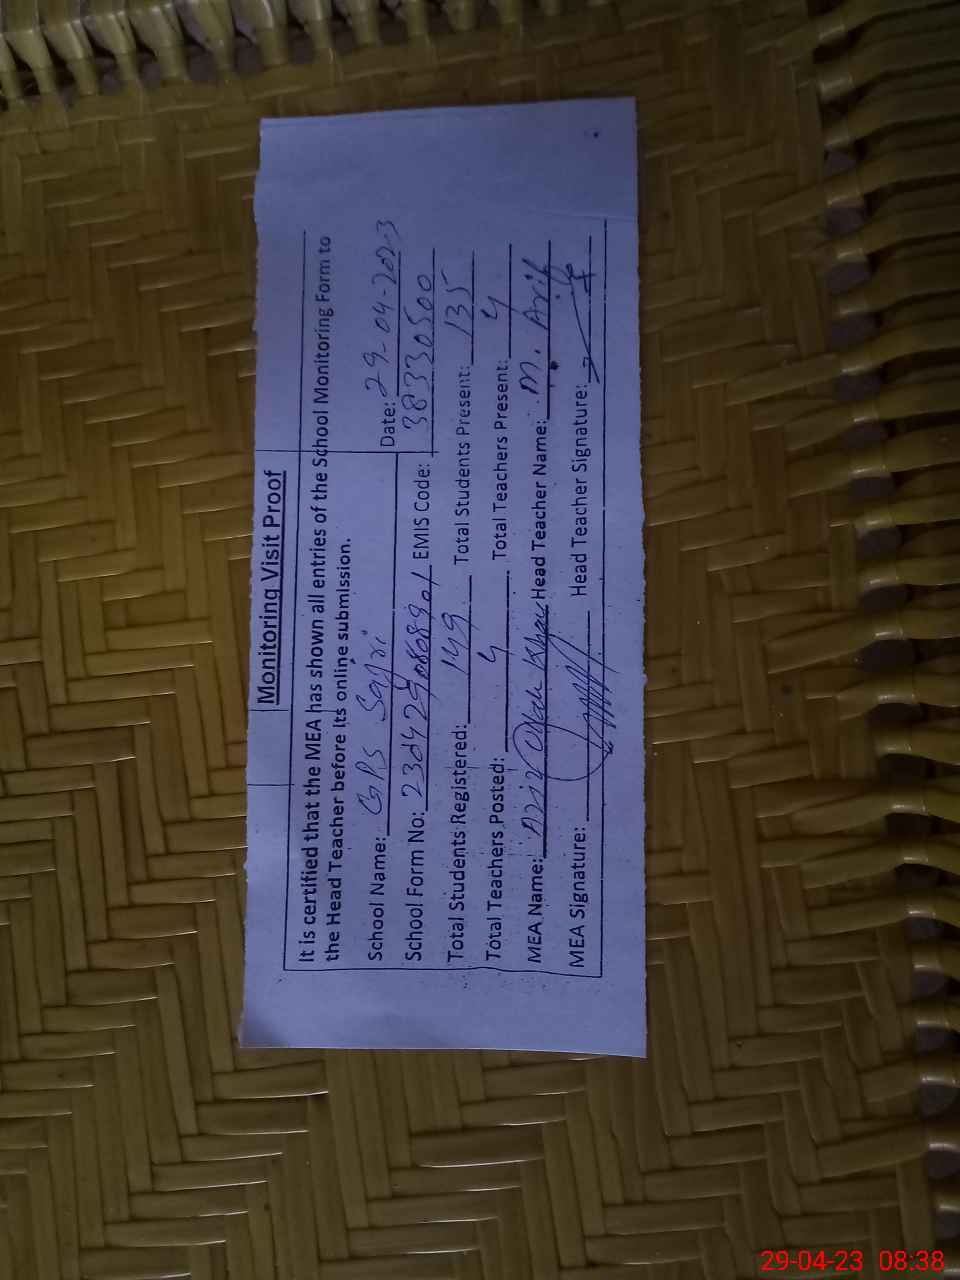 Monitoring Visit Proof
It is certified that the MEA has shown all entries of the School Monitoring Form to
the Head Teacher before its online submission.
School Name: GPS Date: 29-04-2023
School Form No: EMIS Code: 38330500
Total Students Registered: 149 Total Students Present: 135
Total Teachers Posted: 4 Total Teachers Present: 4
MEA Name: Khan Head Teacher Name: M. Arif
MEA Signature: Head Teacher Signature:
29-04-23 08:38